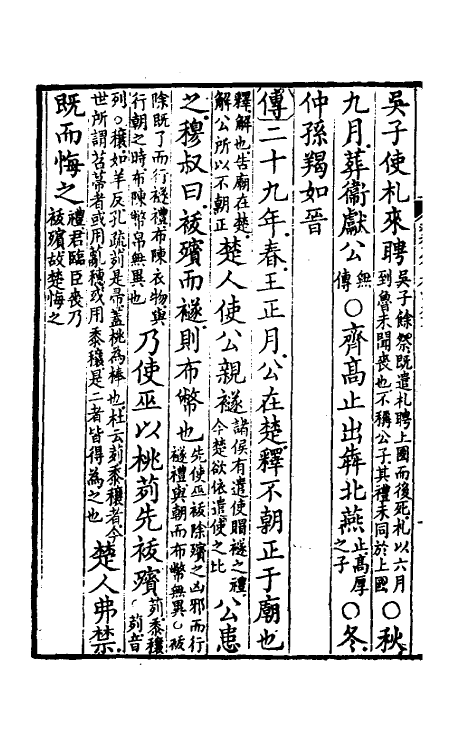 吳子使札來聘吳子餘祭既遣札聘上國而後死札以六月到魯未聞喪也不稱公子其禮未同於上國〇秋
九月葬衞獻公無傳〇齊高止出奔北燕止高厚之子〇冬
仲孫羯如晉
傳二十九年春王正月公在楚釋不朝正于廟也
釋解也告廟在楚解公所以不朝正楚人使公親襚諸侯有遣使賵襚之禮今楚欲依遣使之比公患
之穆叔曰祓殯而襚則布幣也先使巫祓除殯之凶邪而行襚禮與朝而布幣無異〇祓
除既了而行襚禮布陳衣物與行朝之時布陳幣帛無異也乃使巫以桃茢先祓殯茢黍穰〇茢音
列〇穰如羊反孔疏茢是帚蓋桃為棒也杜云茢黍穰者今世所謂苕帚者或用亂穗或用黍穰是二者皆得為之也楚人弗禁
既而悔之禮君臨臣喪乃祓殯故楚悔之